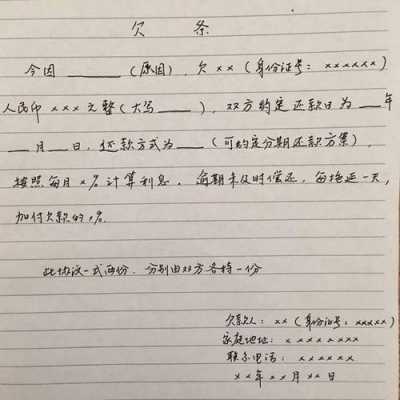 欠 条
今因______(原因),欠××(身份证号:××××××)
人民币×××元整(大写____),双方约定还款日为__年
__月__日,还款方式为___(可约定分期还款方案),
按照每月×%计算利息。逾期未及时偿还,每拖延一天,
加付欠款的×%.
此协议一式两份,分别由双方各持一份
欠款人:××(身份证号:×××××)
家庭地址:××××××××
联系电话:××××××
××年××月××日